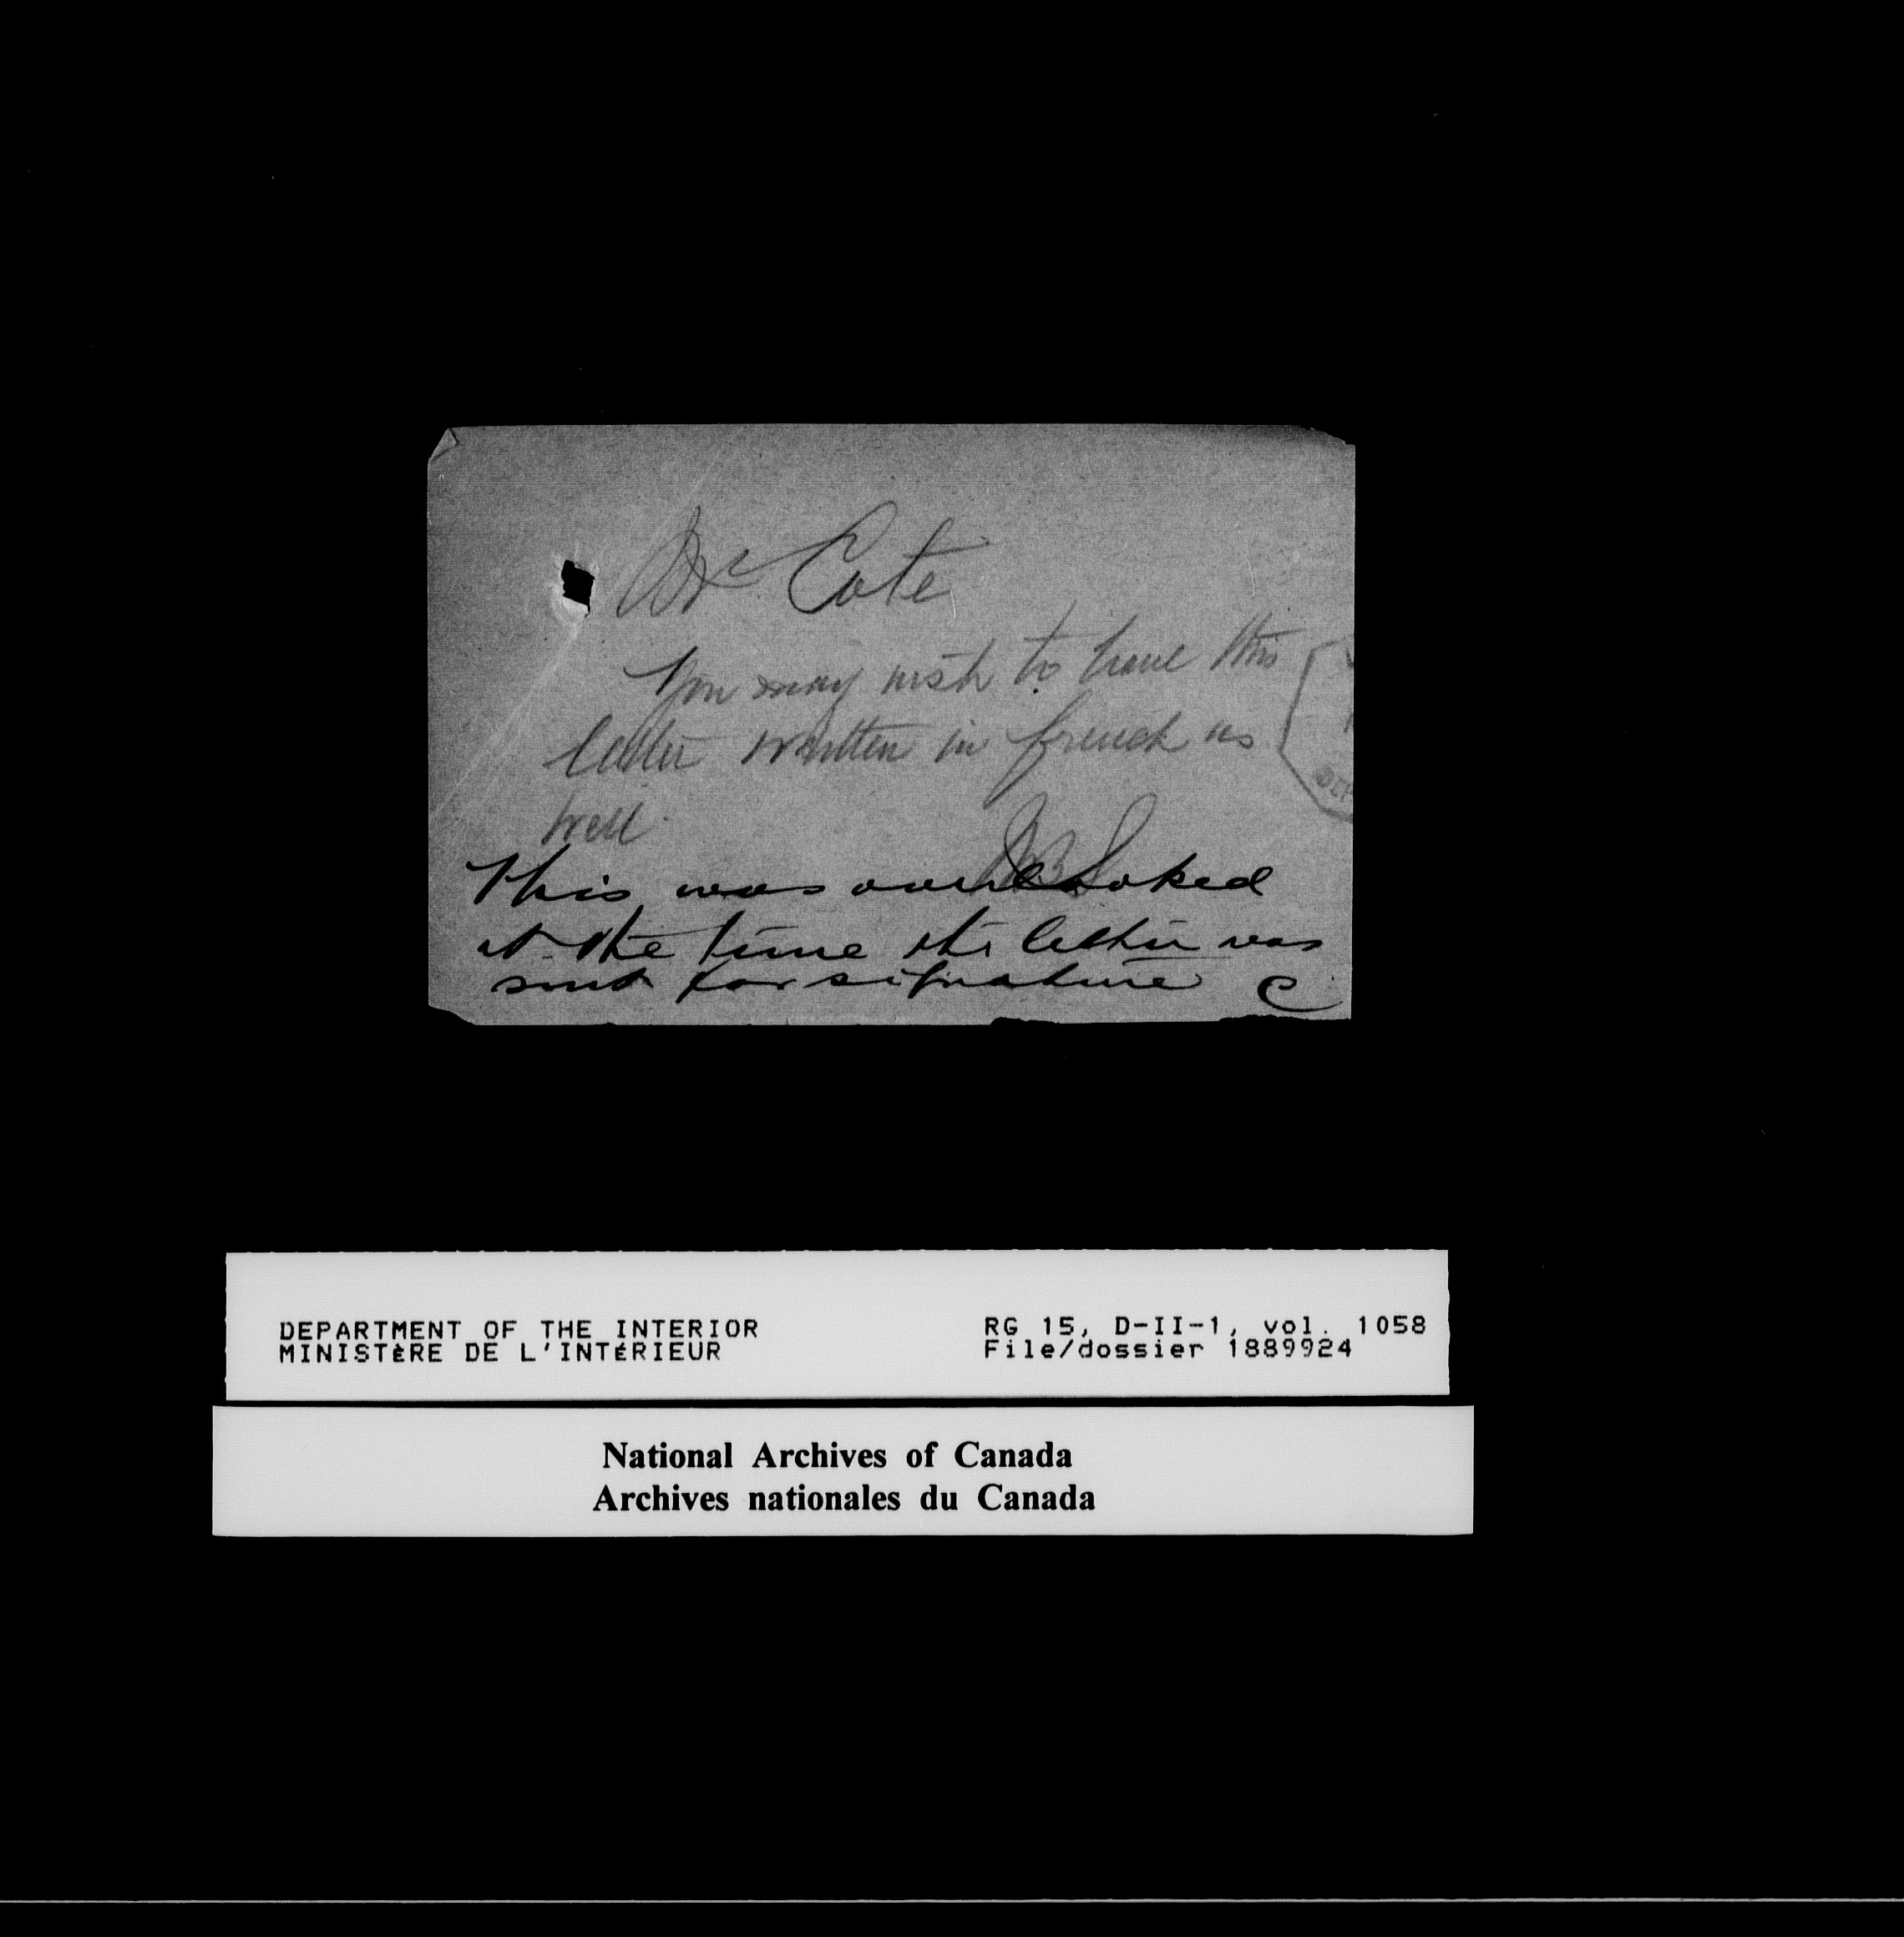 Mr Cote
You may wish to have this
letter written in french as
well.
This was overlooked
at the time the letter was
sent for signature C
DEPARTMENT OF THE INTERIOR
MINISTÈRE DE L'INTÉRIEUR
RG 15, D-II-1, vol. 1058
File/dossier 1889924
National Archives of Canada
Archives nationales du Canada